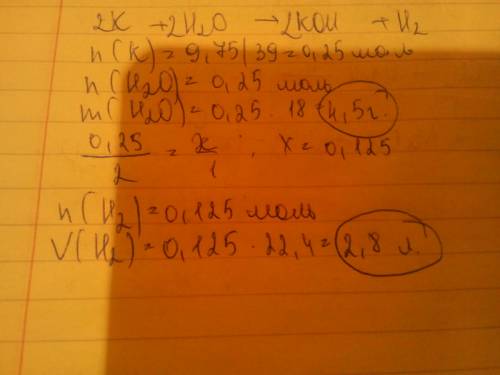 2K + 2H₂O → 2KOH + H₂
n(K) = 9,75/39 = 0,25 моль
n(H₂O) = 0,25 моль
m(H₂O) = 0,25 · 18 = 4,5 г.
0,25/2 = x/1, x = 0,125
n(H₂) = 0,125 моль
V(H₂) = 0,125 · 22,4 = 2,8 л.